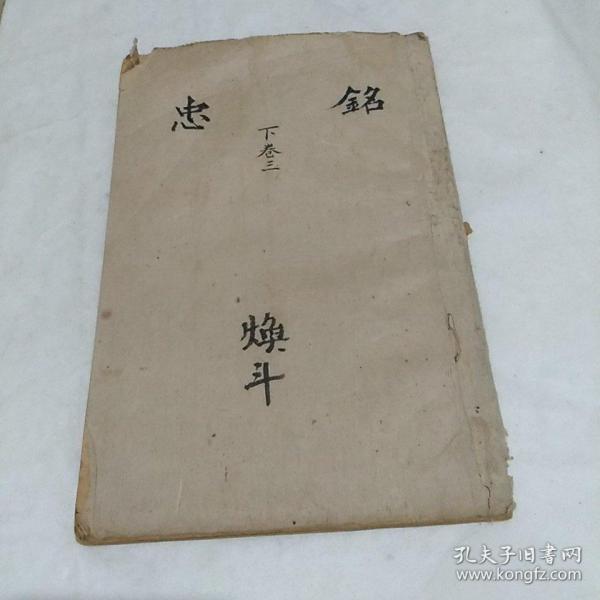 銘
忠
下卷三
煥斗
孔夫子旧書网
www.kongfz.com